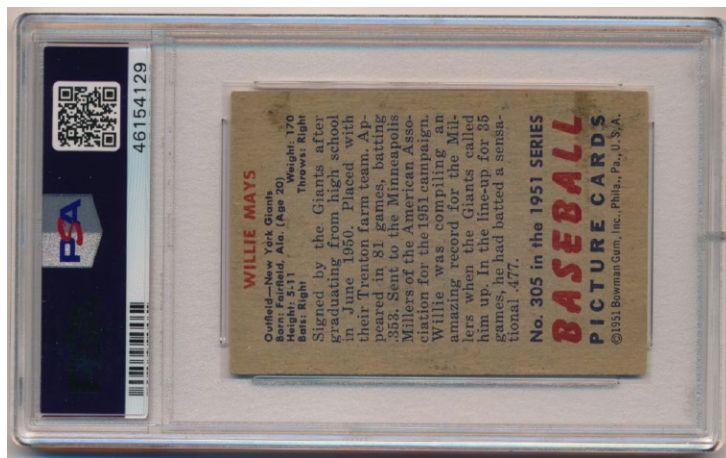 PSA
46154129
WILLIE MAYS
Outfield—New York Giants
Born: Fairfield, Ala. (Age 20)
Height: 5-11 Weight: 170
Bats: Right Throws: Right
Signed by the Giants after
graduating from high school
in June 1950. Placed with
their Trenton farm team. Ap-
peared in 81 games, batting
.353. Sent to the Minneapolis
Millers of the American Asso-
ciation for the 1951 campaign.
Willie was compiling an
amazing record for the Mil-
lers when the Giants called
him up. In the line-up for 35
games, he had batted a sensa-
tional .477.
No. 305 in the 1951 SERIES
BASEBALL
PICTURE CARDS
©1951 Bowman Gum, Inc., Phila., Pa., U.S.A.